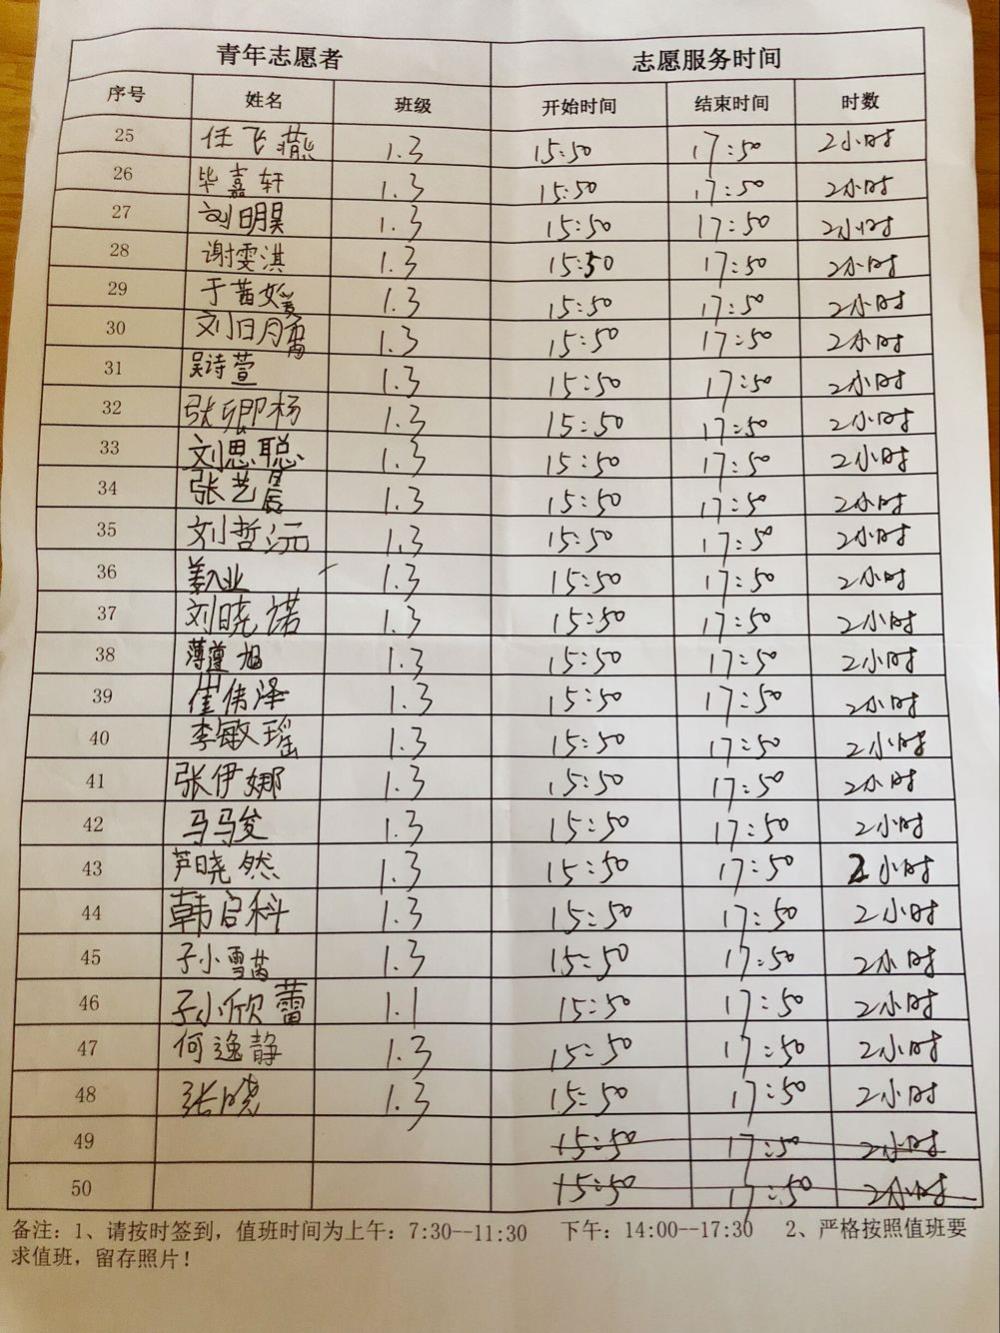 青年志愿者 志愿服务时间
序号 姓名 班级 开始时间 结束时间 时数
25 任飞燕 1.3 15:50 17:50 2小时
26 毕嘉轩 1.3 15:50 17:50 2小时
27 刘明昊 1.3 15:50 17:50 2小时
28 谢雯淇 1.3 15:50 17:50 2小时
29 于茜媛 1.3 15:50 17:50 2小时
30 刘明 1.3 15:50 17:50 2小时
31 吴诗萱 1.3 15:50 17:50 2小时
32 张卿杨 1.3 15:50 17:50 2小时
33 刘思聪 1.3 15:50 17:50 2小时
34 张艺晨 1.3 15:50 17:50 2小时
35 刘哲沅 1.3 15:50 17:50 2小时
36 1.3 15:50 17:50 2小时
37 刘晓诺 1.3 15:50 17:50 2小时
38 薄遵旭 1.3 15:50 17:50 2小时
39 崔伟泽 1.3 15:50 17:50 2小时
40 李敏瑶 1.3 15:50 17:50 2小时
41 张伊娜 1.3 15:50 17:50 2小时
42 1.3 15:50 17:50 2小时
43 芦晓然 1.3 15:50 17:50 2小时
44 韩启科 1.3 15:50 17:50 2小时
45 孙雪 1.3 15:50 17:50 2小时
46 孙欣蕾 1.1 15:50 17:50 2小时
47 何逸静 1.3 15:50 17:50 2小时
48 张晓 1.3 15:50 17:50 2小时
49 15:50 17:50 2小时
50 15:50 17:50 2小时
备注：1、请按时签到，值班时间为上午：7:30--11:30 下午：14:00--17:30 2、严格按照值班要
求值班，留存照片！